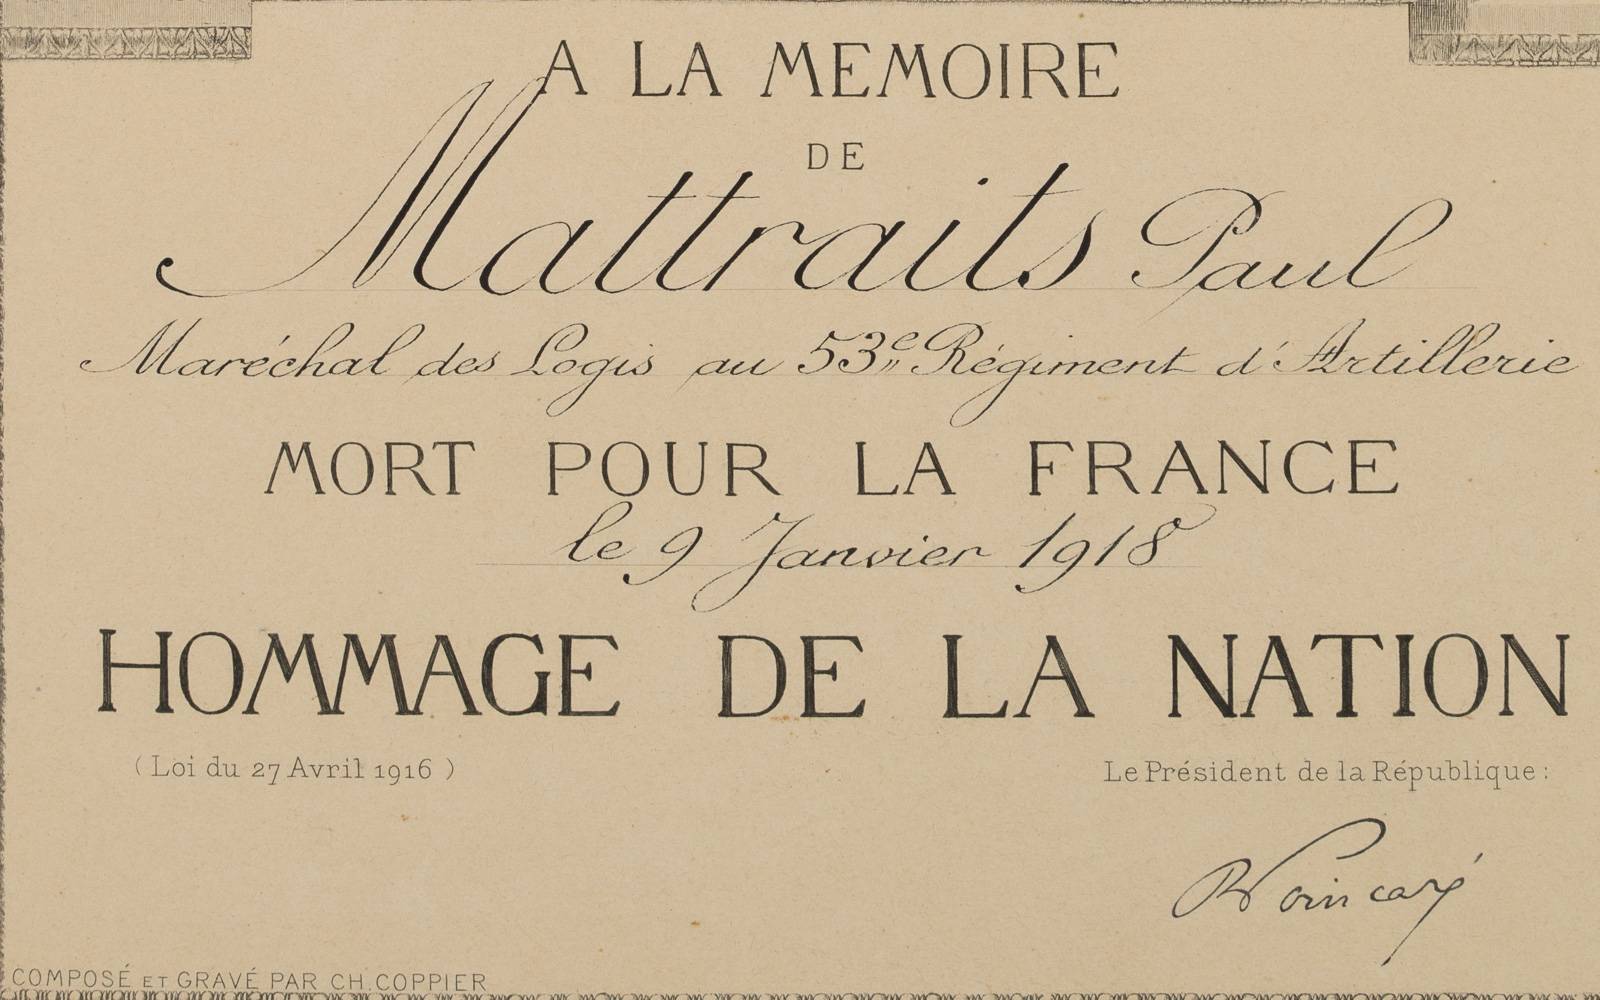 A LA MEMOIRE
DE
Mattraits Paul
Maréchal des Logis au 53e Régiment d'Artillerie
MORT POUR LA FRANCE
le 9 Janvier 1918
HOMMAGE DE LA NATION
(Loi du 27 Avril 1916)
Le Président de la République:
R Poincaré
COMPOSÉ ET GRAVÉ PAR CH. COPPIER